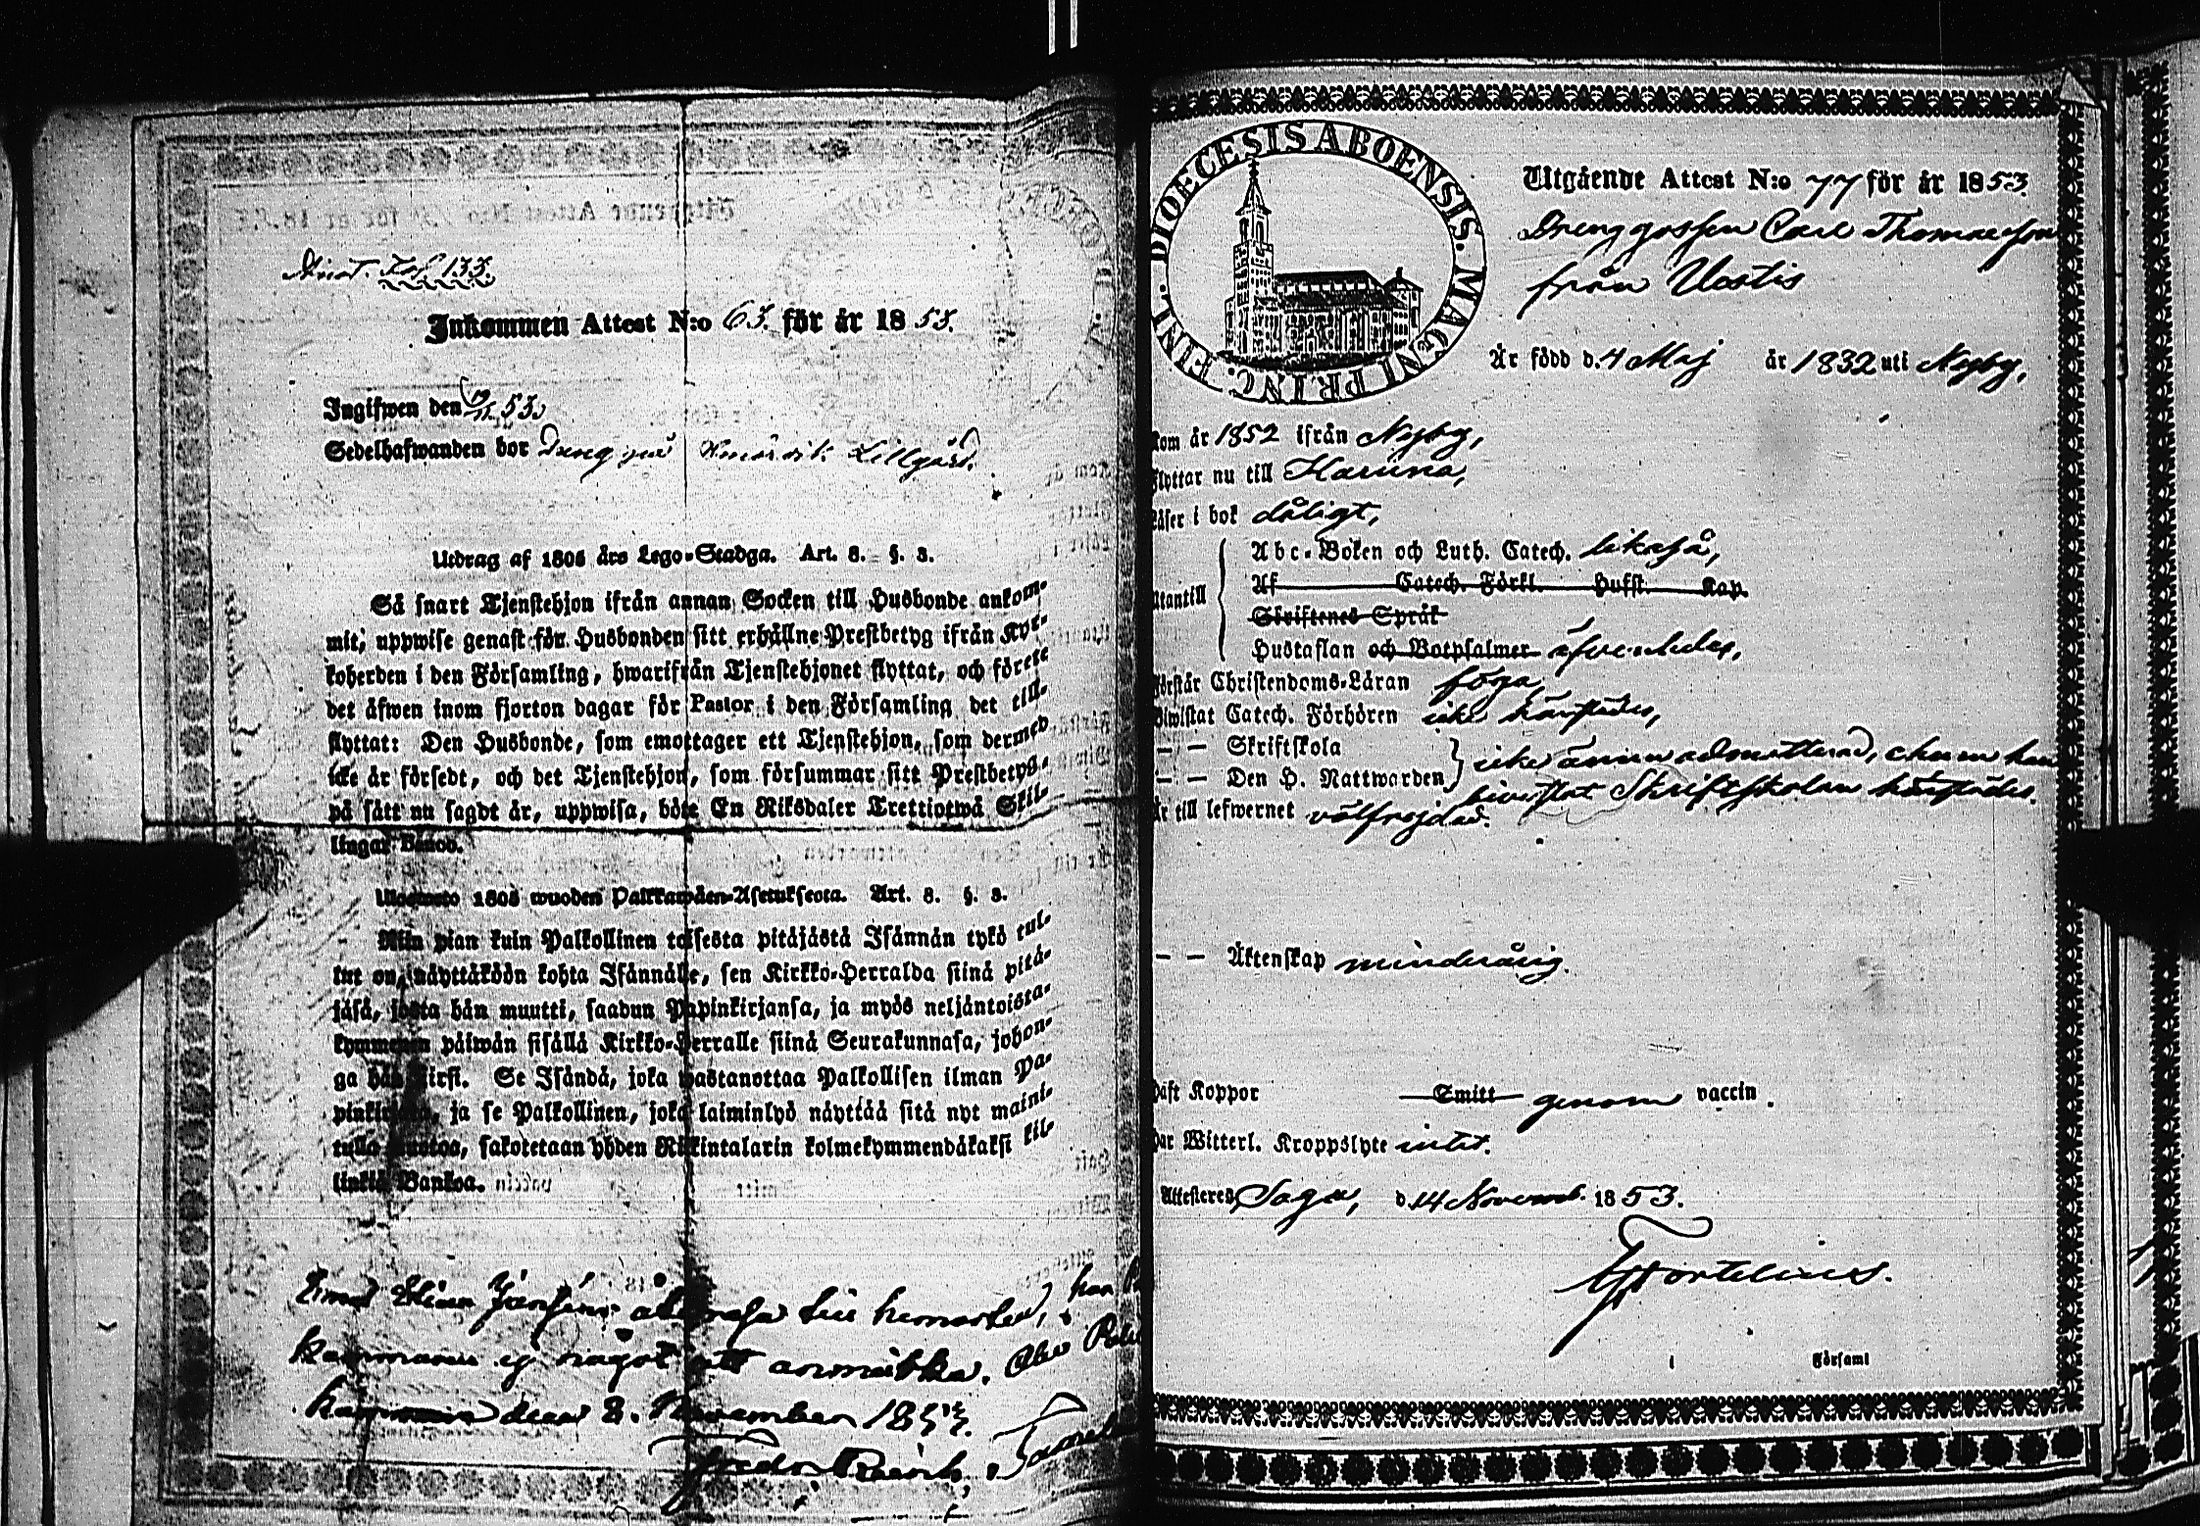 Inkommen Attest N:o 63. för år 1853.
Ingifwen den 19/11 53.
Sedelhafwanden bor Lillgård.
Utdrag af 1805 års Lego-Stadga. Art. 8. §. 3.
Så snart Tjenstehjon ifrån annan Socken till Husbonde ankom-
mit, uppwise genast för Husbonden sitt erhållne Prestbetyg ifrån Kyr-
koherden i den Församling, hwarifrån Tjenstehjonet flyttat, och förete
det äfwen inom fjorton dagar för Pastor i den Församling det till-
flyttat: Den Husbonde, som emottager ett Tjenstehjon, som dermed
icke är försedt, och det Tjenstehjon, som försummar sitt Prestbetyg,
på sätt nu sagdt är, uppwisa, böte En Riksdaler Trettiotwå Skil-
lingar Banco.
1805 wuoden Palkkawäen-Asetuksesta. Art. 8. §. 3.
Niin pian kuin Palkollinen toisesta pitäjästä Isännän tykö tul-
lut on, näyttäköön kohta Isännälle, sen Kirkko-Herralda siinä pitä-
jäsä, josta hän muutti, saadun Papinkirjansa, ja myös neljäntoista-
kymmenen päiwän sisällä Kirkko-Herralle siinä Seurakunnasa, johon-
ga hän siirsi. Se Isändä, joka wastanottaa Palkollisen ilman Pa-
pinkirjata, ja se Palkollinen, joka laiminlyö näyttää sitä nyt maini-
tulla muotoa, sakotetaan yhden Riikintalarin kolmekymmendäkaksi kil-
linkiä Bankoa.
till hemorten,
kammaren ej något att anmärka. Åbo
den 8. November 1853.
DIOECESIS ABOENSIS. MAGNI PRINC. FINL.
Utgående Attest N:o 77 för år 1853.
Drenggossen Carl Thomasson
från
Är född d. 4 Maj år 1832 uti Nyby,
kom år 1852 ifrån Nyby,
flyttar nu till Karuna,
Läser i bok dåligt,
Utantill
Abc-Boken och Luth. Catech. likaså,
Af Catech. Förkl. Hufst. Kap.
Skriftenes Språk
Hustaflan och Botpsalmer äfvenledes,
Förstår Christendoms-Läran föga
Biwistat Catech. Förhören icke härstädes,
— — Skriftskola
— — Den H. Nattwarden
icke ännu admitterad, ehuru han
bivistat Skriftskolan härstädes.
Är till lefwernet välfrejdad.
— — Äktenskap minderårig.
Haft Koppor Smitt genom vaccin.
Har Witterl. Kroppslyte intet.
Attesteres Sagu, d. 14 Novemb. 1853.
Församl